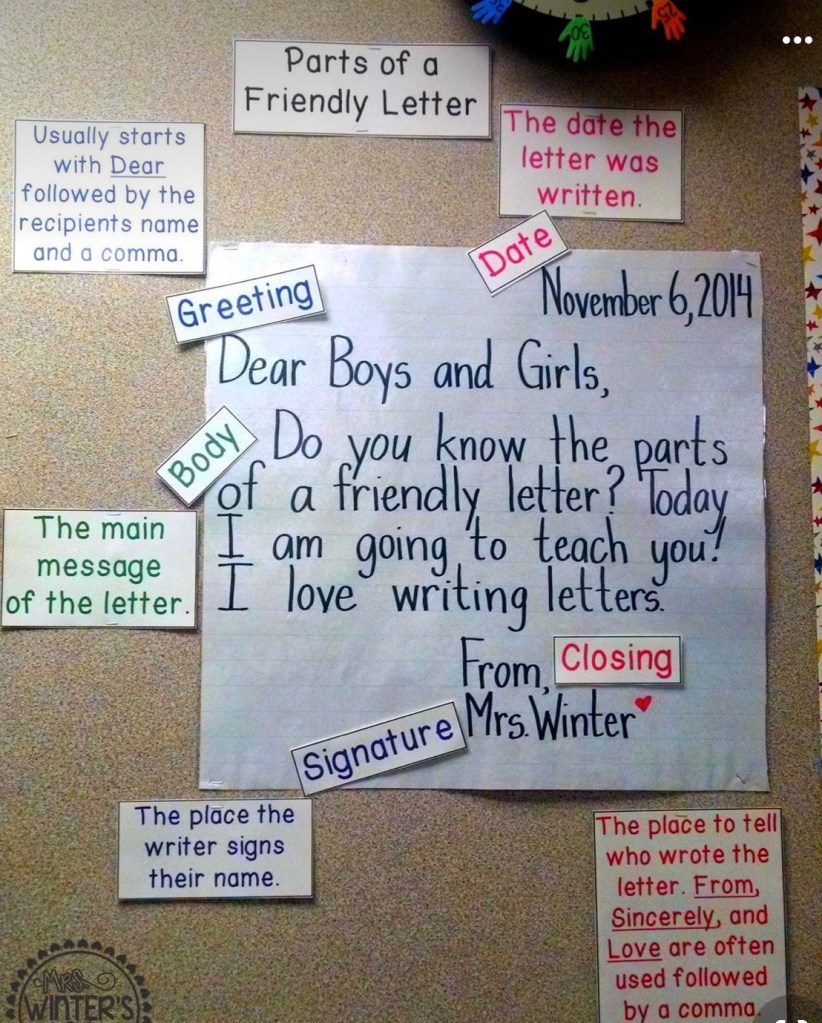 30
25
Parts of a
Friendly Letter
Usually starts
with Dear
followed by the
recipients name
and a comma.
The date the
letter was
written.
Date
Greeting
November 6, 2014
Dear Boys and Girls,
Body
Do you know the parts
of a friendly letter? Today
I am going to teach you!
I love writing letters.
The main
message
of the letter.
From,
Closing
Mrs. Winter
Signature
The place the
writer signs
their name.
The place to tell
who wrote the
letter. From,
Sincerely, and
Love are often
used followed
by a comma.
MRS.
WINTER'S